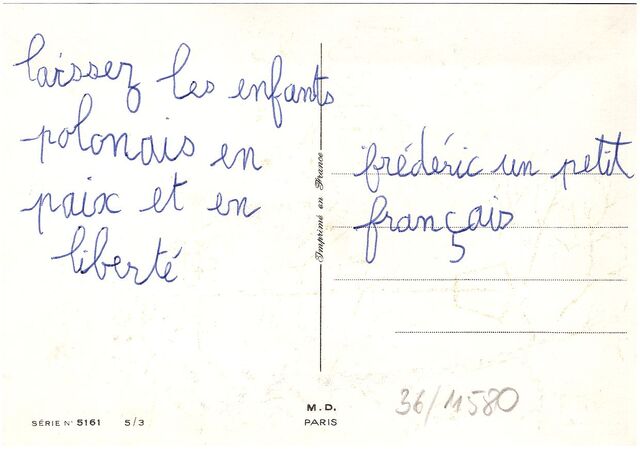 laissez les enfants
polonais en
paix et en
liberté
Imprimé en France
frédéric un petit
français
SÉRIE N° 5161 5/3
M.D.
PARIS
36/11580